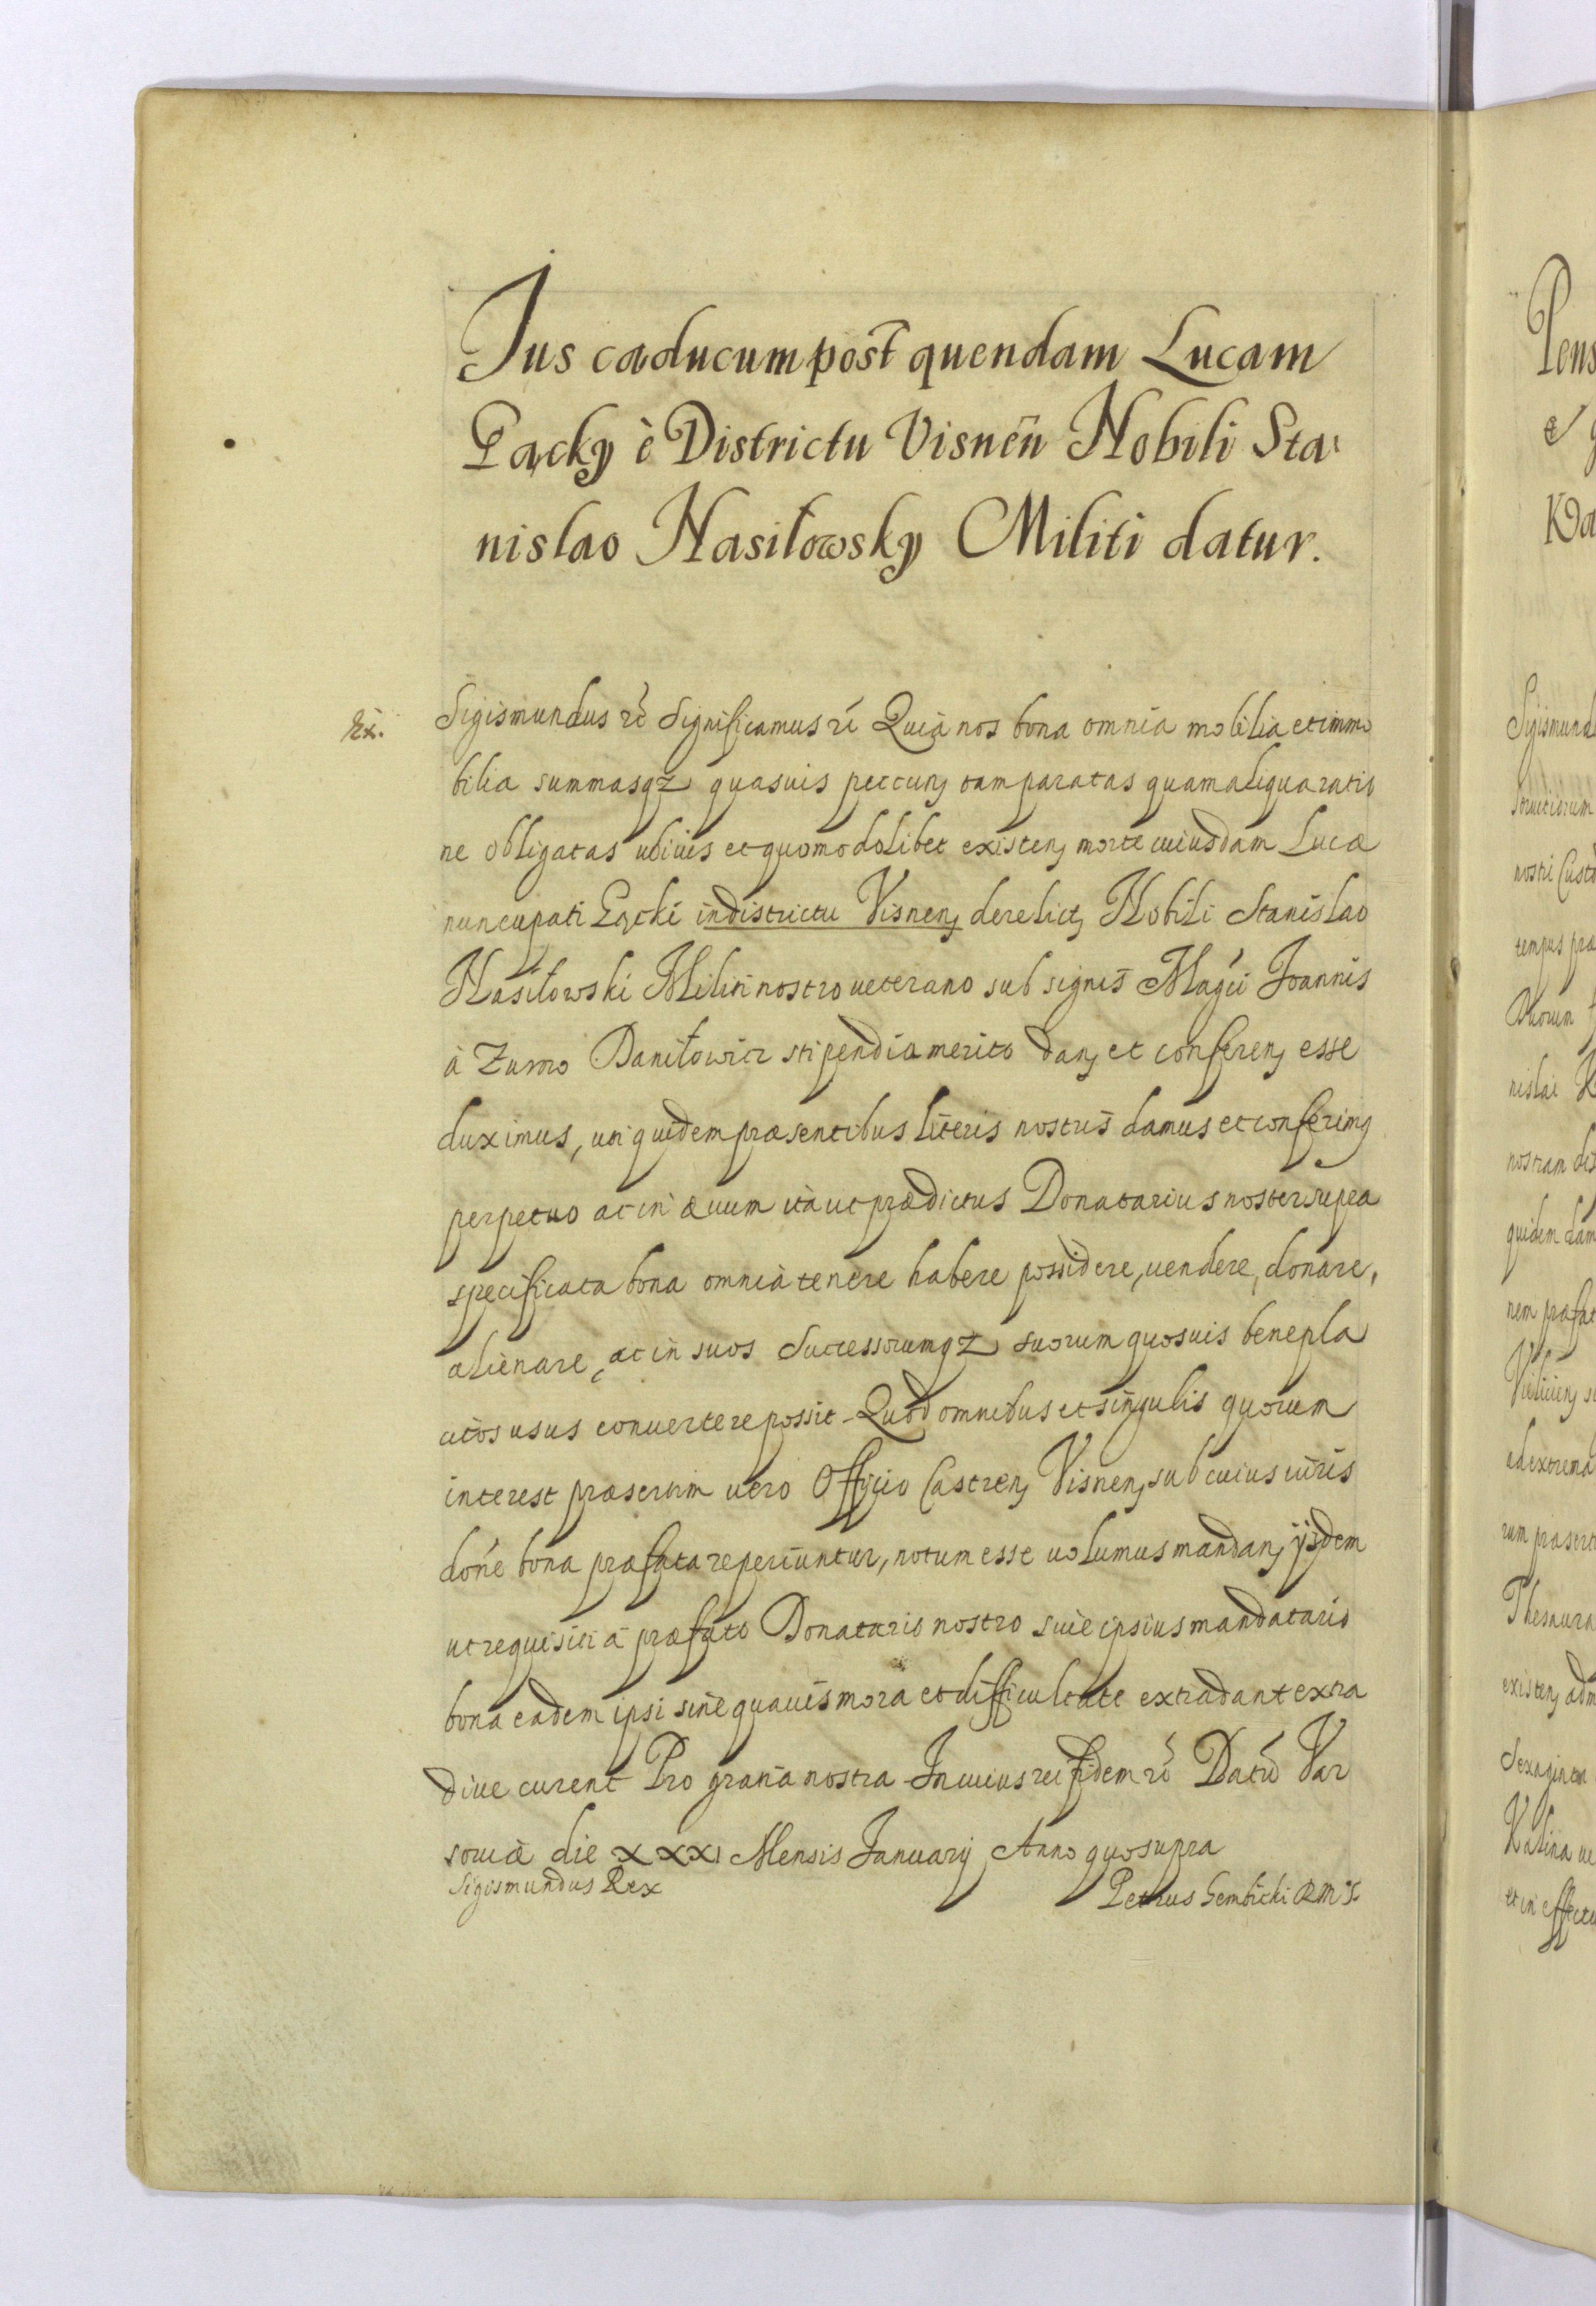 Jus caducum post quendam Lucam
Łącky è Districtu Visneñ Nobili Sta:
nislao Hasiłowsky Militi datur.
Rx. Sigismundus rc̃ Significamus rc̃ Quia nos bona omnia mobilia et immo
bilia summasqz quasuis peccun, tam paratas quam aliqua ratio
ne obligatas ubiuis et quomodolibet existen, morte cuiusdam Lucæ
nuncupati Łącki in districtu Visnen, derelict, Nobili Stanislao
Hasiłowski Militi nostro ueterano sub signis Magci Joannis
à Zurow Daniłowicz stipendia merito dan, et conferen, esse
duximus, uti quidem præsentibus literis nostris damus et conferim,
perpetuo ac in æuum ità ut prædictus Donatarius noster supea
specificata bona omnia tenere habere possidere, uendere, donare,
alienare, ac in suos Successorumqz suorum quosuis benepla
citos usus conuertere possit. Quod omnibus et singulis quorum
interest præsertim uero Officio Castren, Visnen, sub cuius iuris
doñe bona præfata reperiuntur, notum esse uolumus mandan, ijsdem
ut requisiti à præfato Donatario nostro siue ipsius mandatario
bona eadem ipsi sine quauis mora et difficultate extradant extra
diue curent Pro gratia nostra In cuius rei fidem rc̃ Datũ Var
souiæ die XXXI Mensis Januarij Anno quo supra
Sigismundus Rex Petrus Gembicki
Sigismund
nostri
tempus
nislai
nostram
quidem
nem
Thesaura
existen,
Kalina